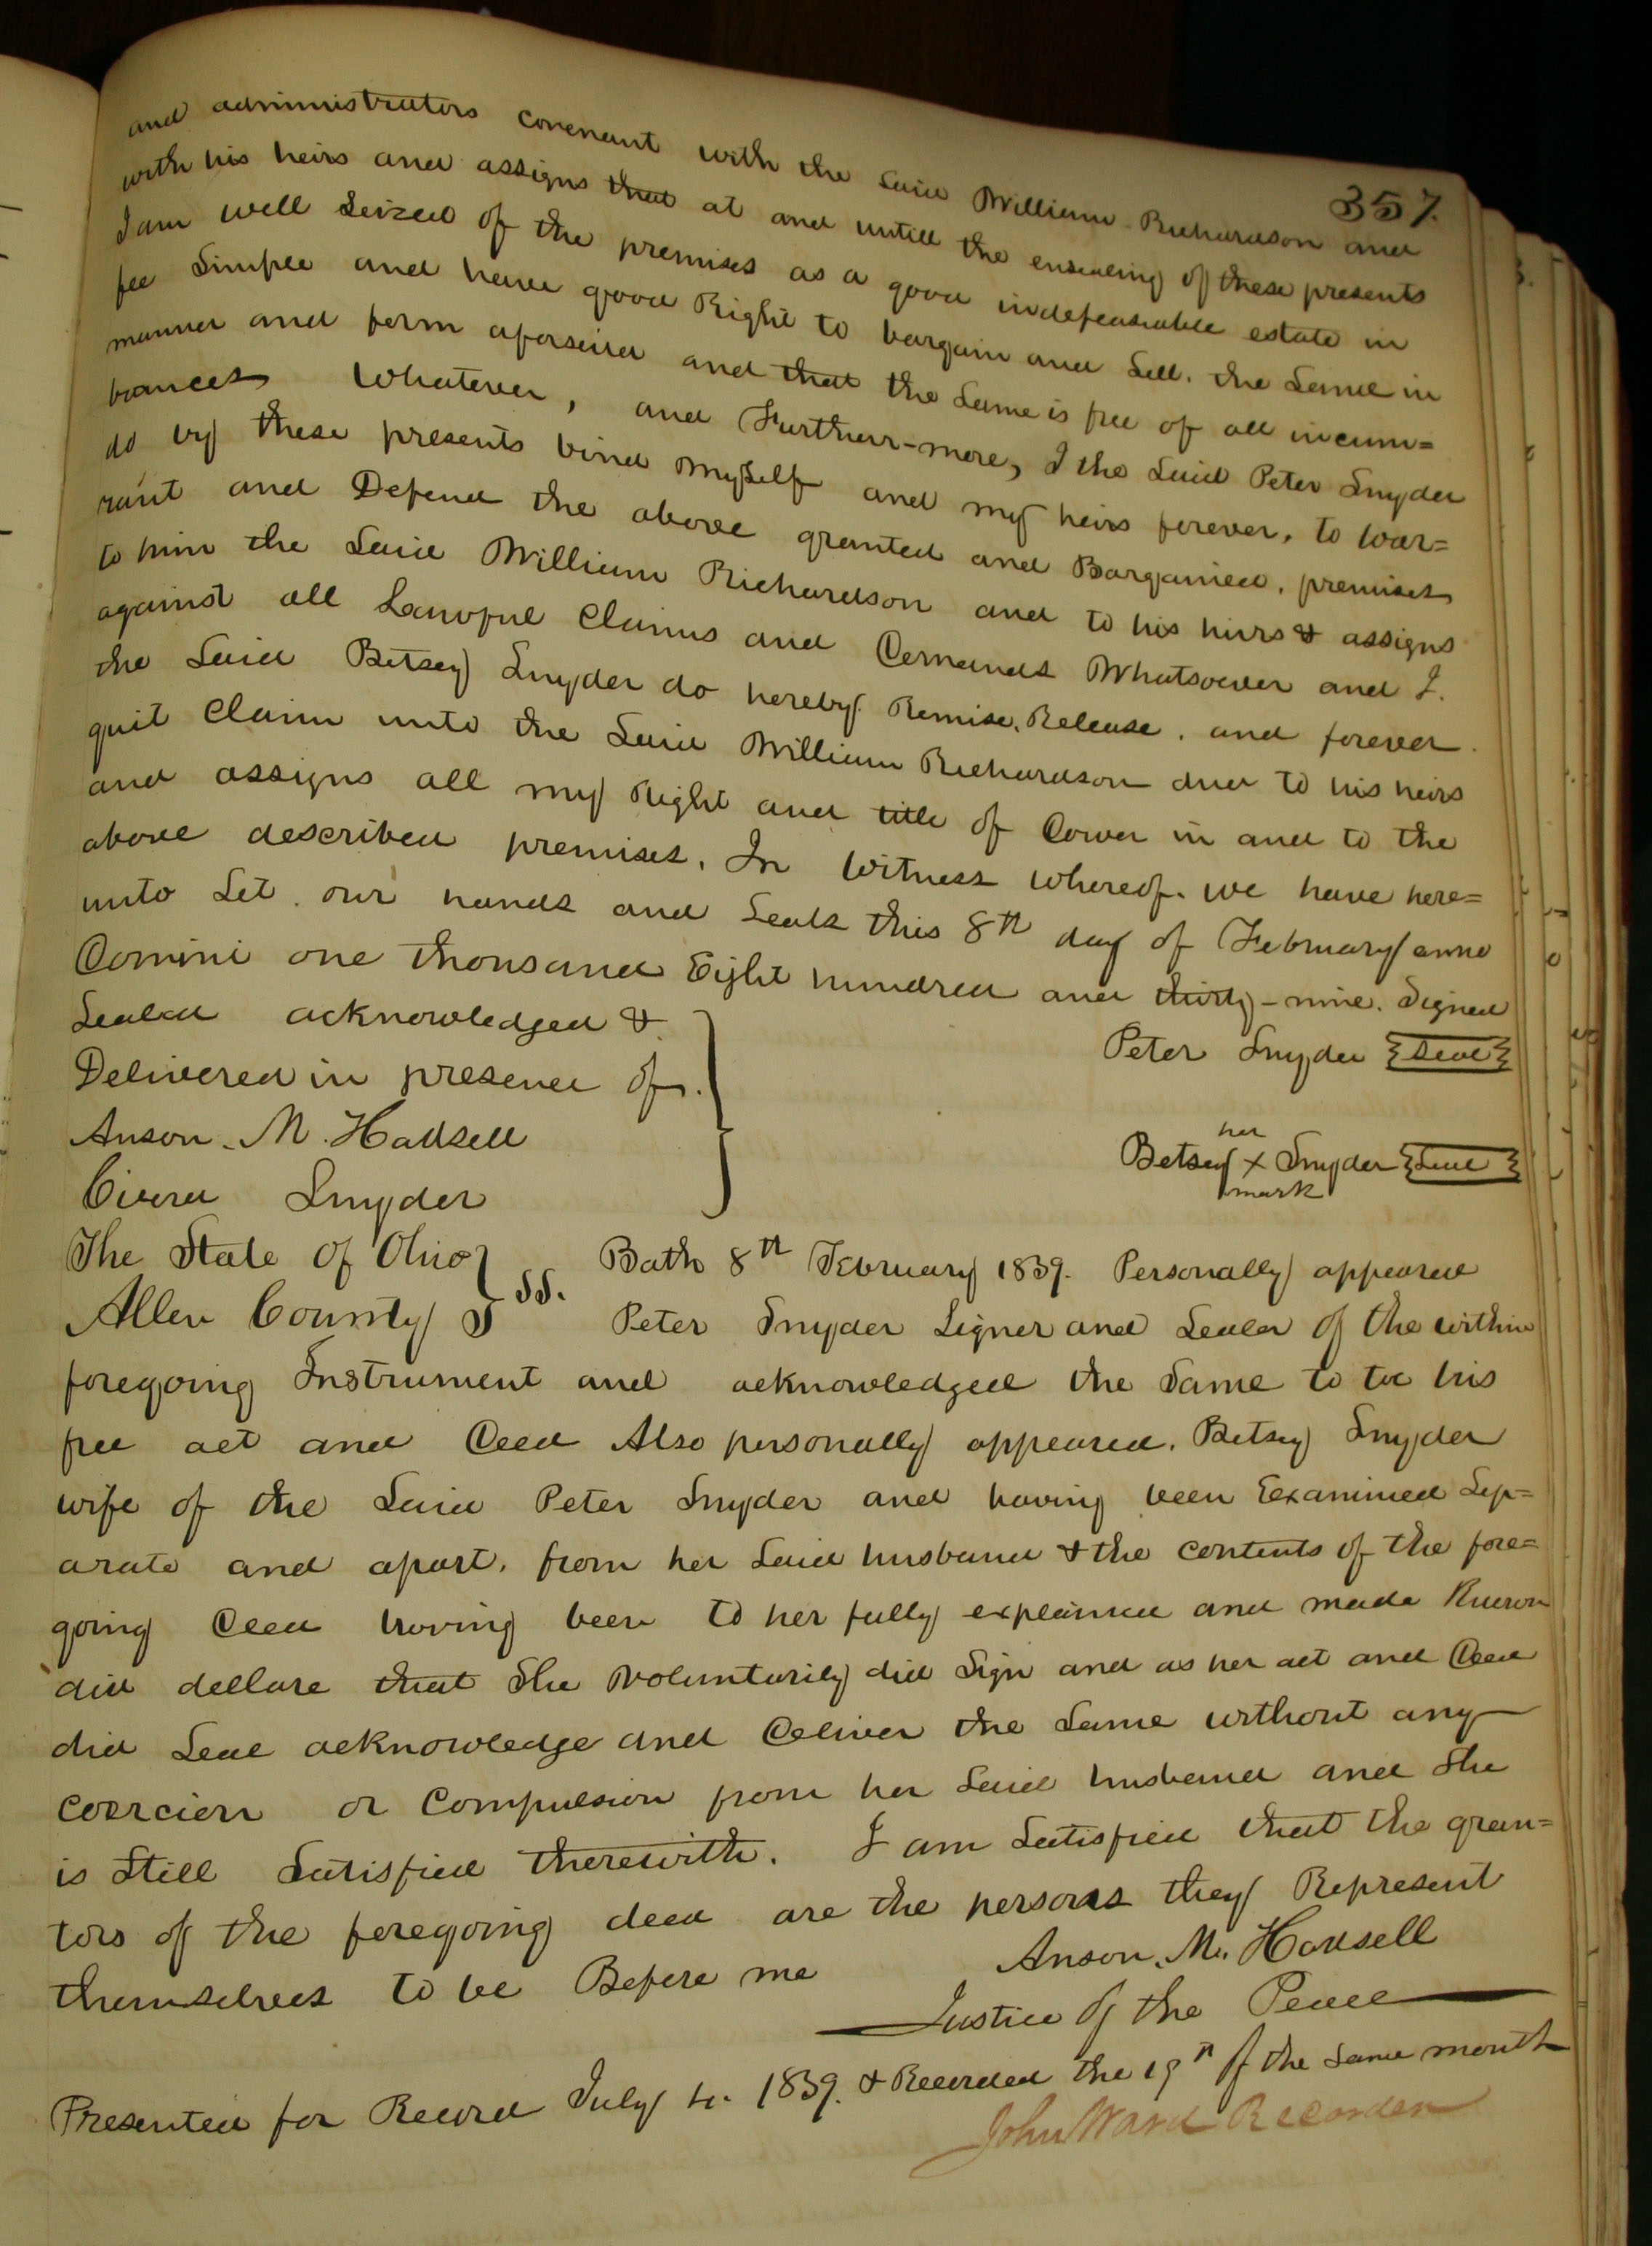 357.
and administrators covenant with the Said William Richardson and
with his heirs and assigns that at and untill the ensealing of these presents
I am well Seized of the premises as a good indefeasiable estate in
fee Simple and have good Right to bargain and Sell. the Same in
manner and form aforesaid and that the Same is free of all incum=
brances Whatever, and Furtherr-more, I the Said Peter Snyder
do by these presents bind myself and my heirs forever, to War=
rant and Defend the above granted and Bargained, premises
to him the Said William Richardson and to his hiers & assigns
against all Lawful Claims and Demands Whatsoever and I.
the Said Betsey Snyder do hereby Remise, Release, and forever
quit Claim unto the Said William Richardson and to his heirs
and assigns all my Right and title of Dower in and to the
above described premises, In Witness Whereof. we have here=
unto Set our hands and Seals this 8th day of February anno
Domini one thousand Eight hundred and thirty-nine. Signed
Sealed acknowledged &
Delivered in presence of
Anson. M. Hadsell
Snyder
Peter Snyder {Seal}
her
Betsey X Snyder {Seal}
mark
The State of Ohio } SS. Bath 8th February 1839. Personally appeared
Allen County } Peter Snyder Signer and Sealer of the within
foregoing Instrument and acknowledged the Same to be his
free act and Deed Also personally appeared, Betsey Snyder
wife of the Said Peter Snyder and having been Examined Sep=
arate and apart, from her Said husband & the contents of the fore=
going Deed having been to her fully explained and made Known
did decllare that She Voluntarily did Sign and as her act and Deed
did Seal acknowledge and Deliver the Same without any
coercion or Compulsion from her Said husband and She
is Still Satisfied therewith. I am Satisfied that the gran=
tors of the foregoing deed are the persons they Represent
themselves to be Before me Anson, M. Hadsell
Justice of the Peace
Presented for Record July 4. 1839. & Recorded the 19th of the Same month
John Ward Recorder